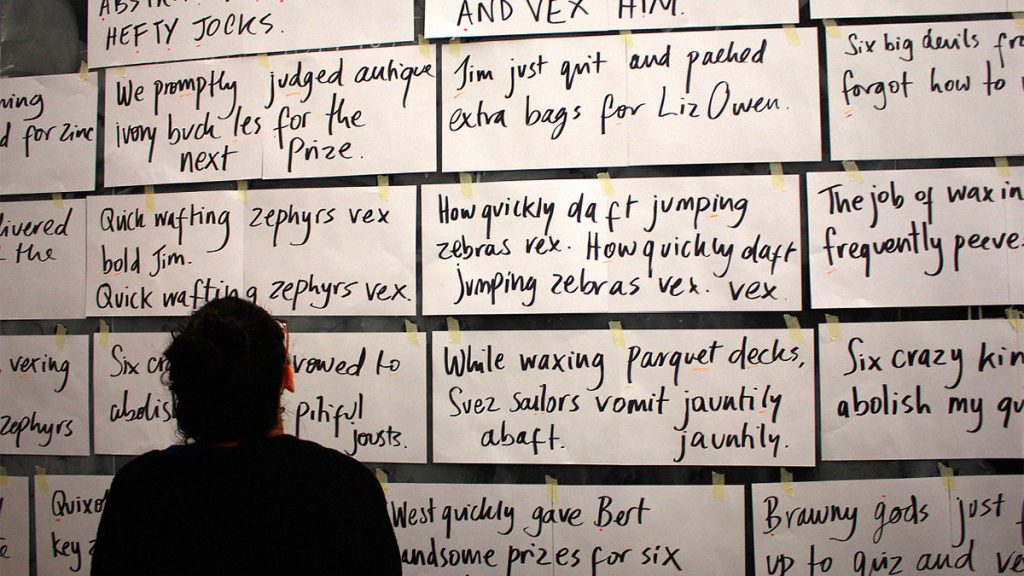 HEFTY JOCKS.
AND VEX HIM.
We promptly judged antique
ivory buck les for the
next Prize.
Jim just quit and packed
extra bags for Liz Owen.
Six big devils
forgot how to
d for zinc
Quick wafting zephyrs vex
bold Jim.
Quick wafting zephyrs vex.
How quickly daft jumping
zebras vex. How quickly daft
jumping zebras vex. vex.
The job of wax
frequently
the
vexing
zephyrs
Six vowed to
abolish pitiful
jousts.
While waxing Parquet decks,
Suez sailors vomit jauntily
abaft. jauntily.
Six crazy
abolish my
key
West quickly gave Bert
handsome prizes for six
Brawny gods just
up to quiz and